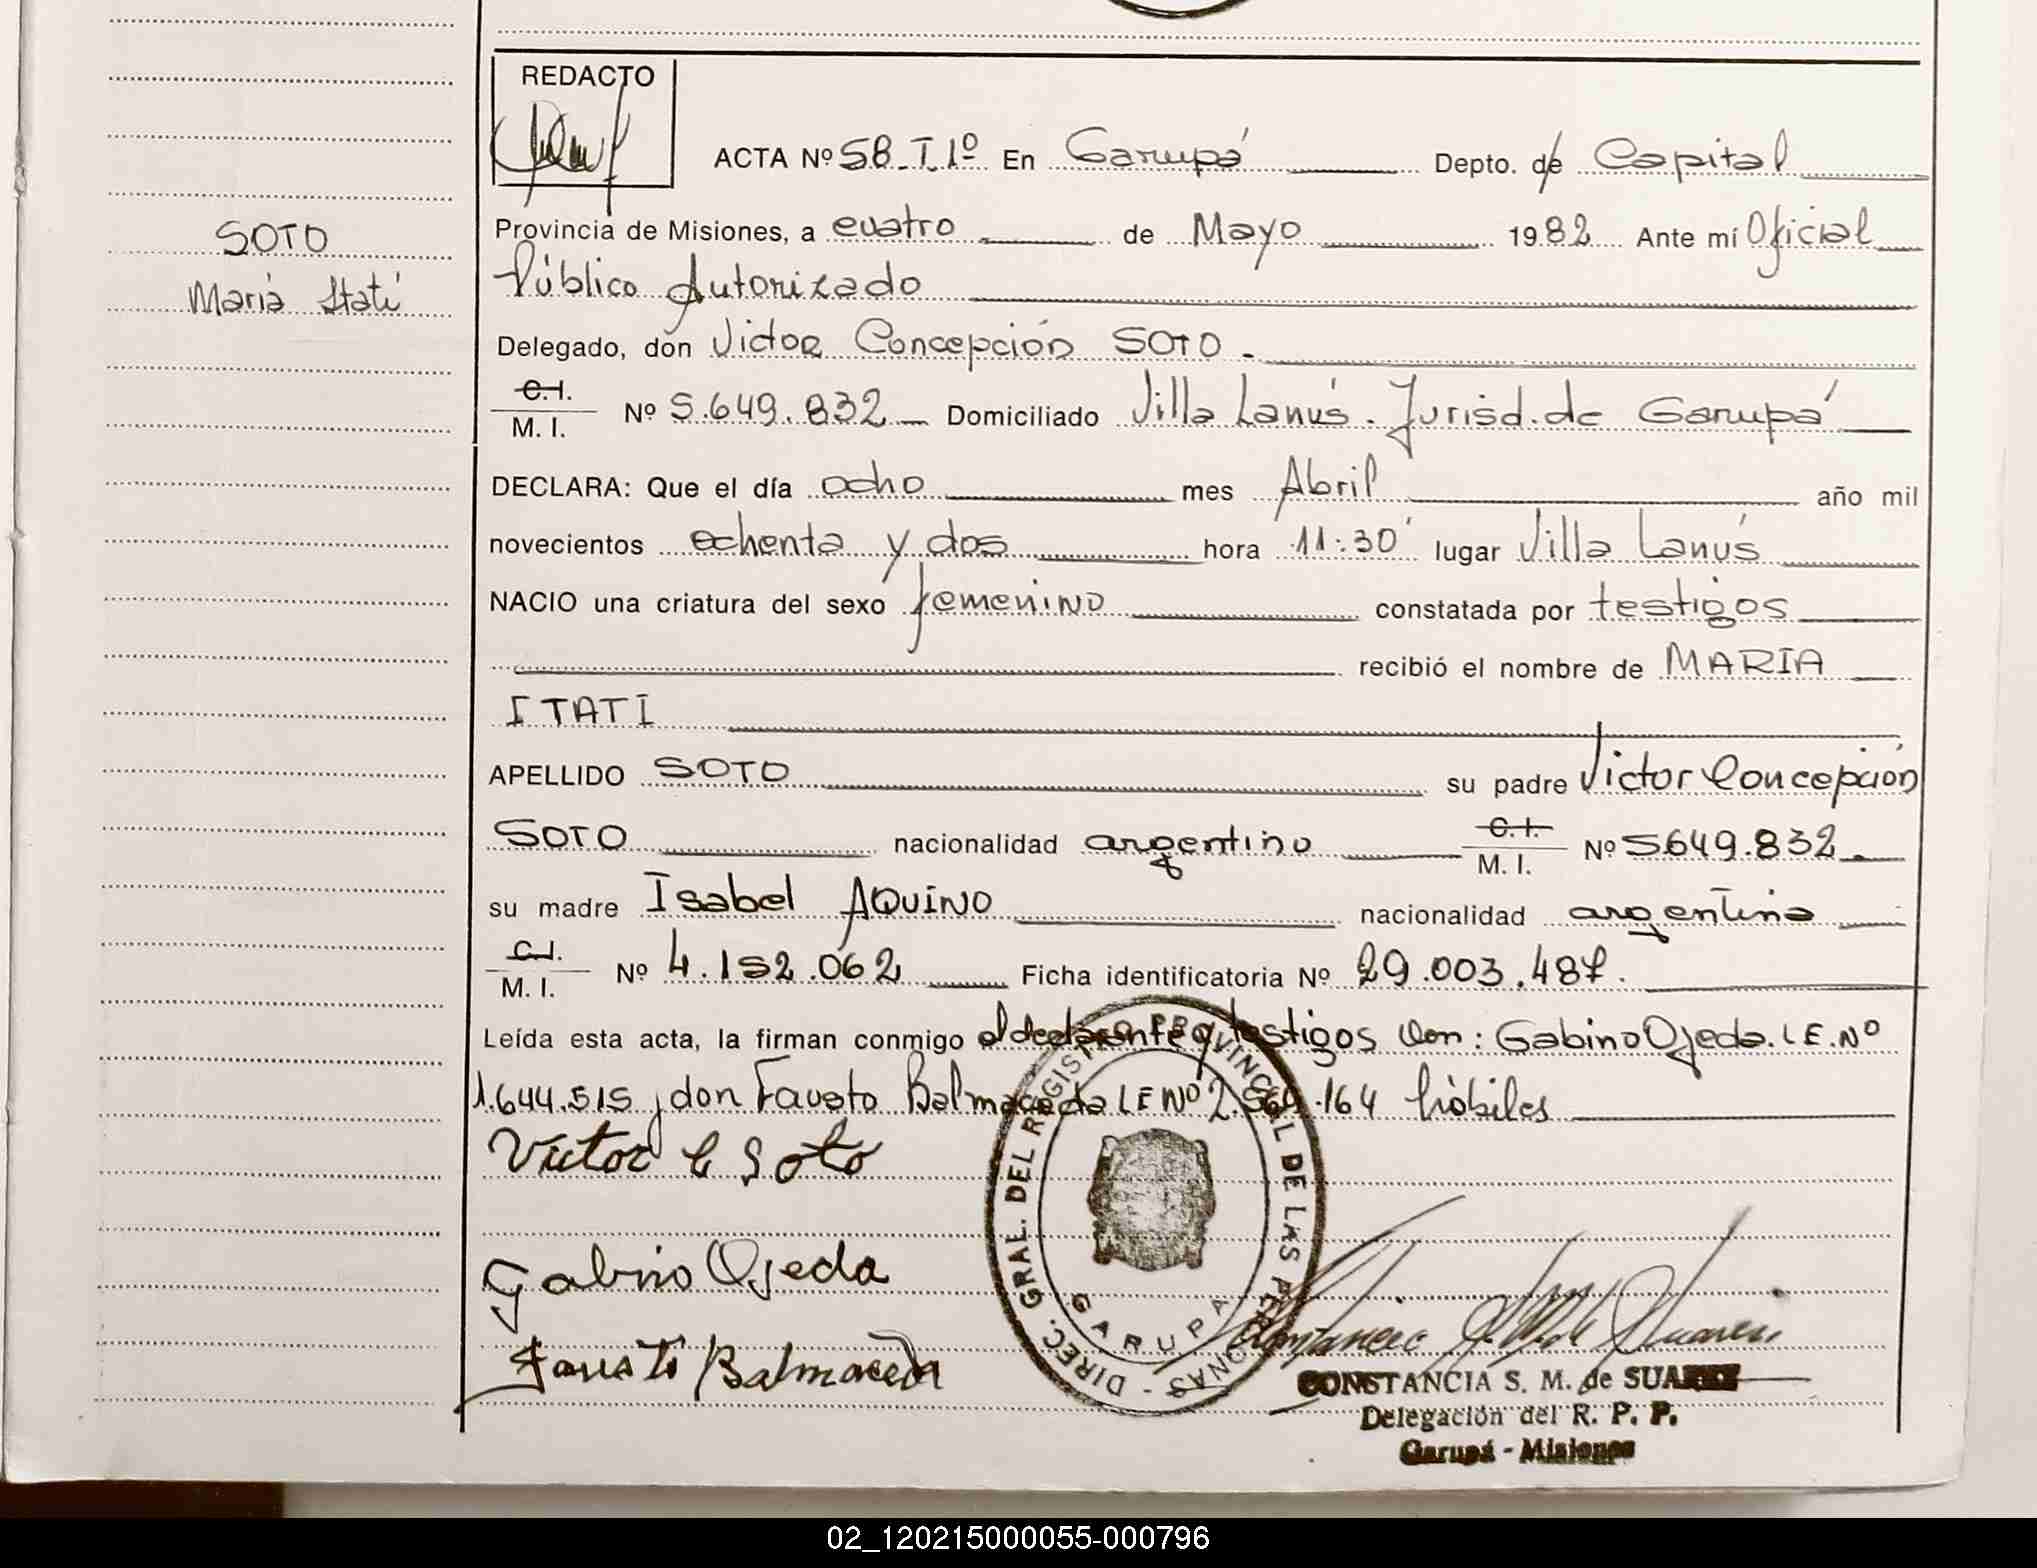 REDACTO
ACTA Nº 58-T.1º En Garupá Depto. de Capital
SOTO
Maria Itatí
Provincia de Misiones, a cuatro de Mayo 1982 Ante mí Oficial
Público Autorizado
Delegado, don Victor Concepción SOTO.
C.I.
M. I. Nº 5.649.832 Domiciliado Villa Lanús. Jurisd. de Garupá
DECLARA: Que el día ocho mes Abril año mil
novecientos ochenta y dos hora 11:30 lugar Villa Lanús
NACIO una criatura del sexo femenino constatada por testigos
recibió el nombre de MARIA
ITATI
APELLIDO SOTO su padre Victor Concepción
SOTO nacionalidad argentino C.I. M. I. Nº 5649.832
su madre Isabel AQUINO nacionalidad argentina
C.I.
M. I. Nº 4.152.062 Ficha identificatoria Nº 29.003.487.
Leída esta acta, la firman conmigo el declarante y testigos Don: Gabino Ojeda. L E. Nº
1.644.515, don Fausto Balmaceda L E Nº 2.564.164 hábiles
Victor C Soto
Gabino Ojeda
Fausto Balmaceda
DIREC. GRAL. DEL REGISTRO PROVINCIAL DE LAS PERSONAS -
GARUPA
CONSTANCIA S. M. de SUAREZ
Delegación del R. P. P.
Garupá - Misiones
02_120215000055-000796